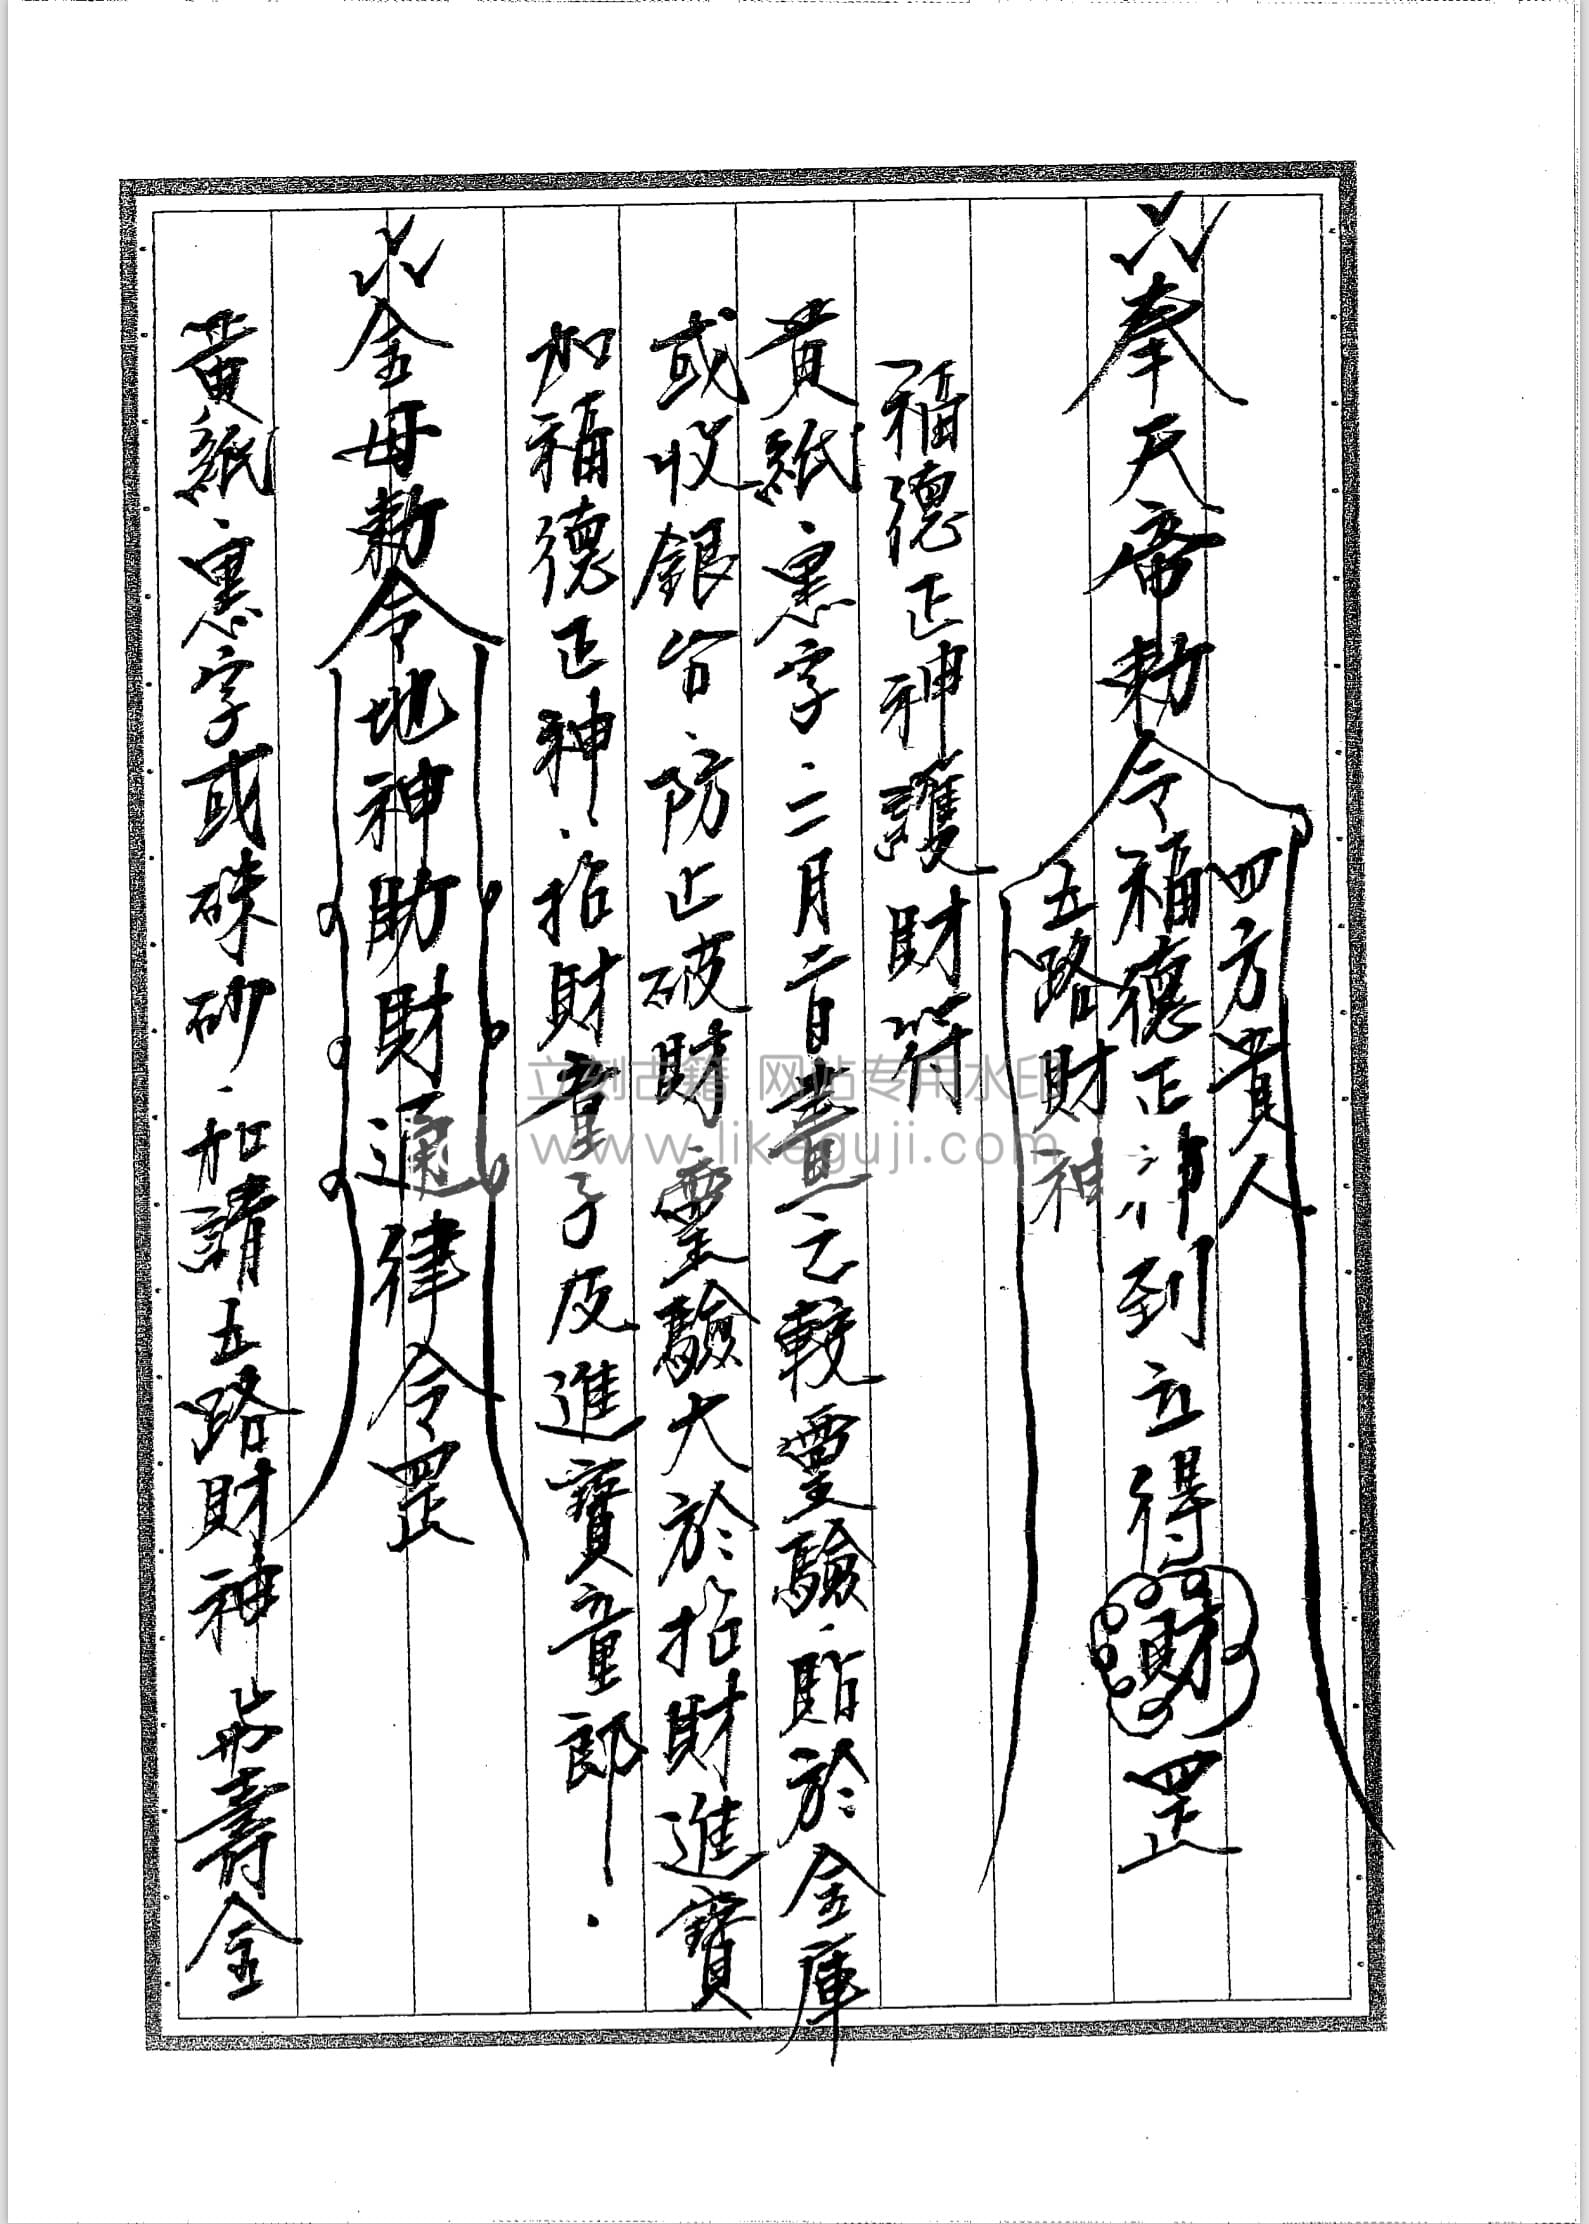 奉天帝敕令福德正神到立得財罡
四方貴人
五路財神
福德正神護財符
黃紙.黑字.二月二日畫之較靈驗.貼於金庫
或收銀台.防止破財靈驗大於招財進寶
加福德正神.招財童子及進寶童郎.
金母敕令地神助財通律令罡
黃紙.黑字或硃砂.加請五路財神 壽金
立刻古籍 网站专用水印
www.likeguji.com